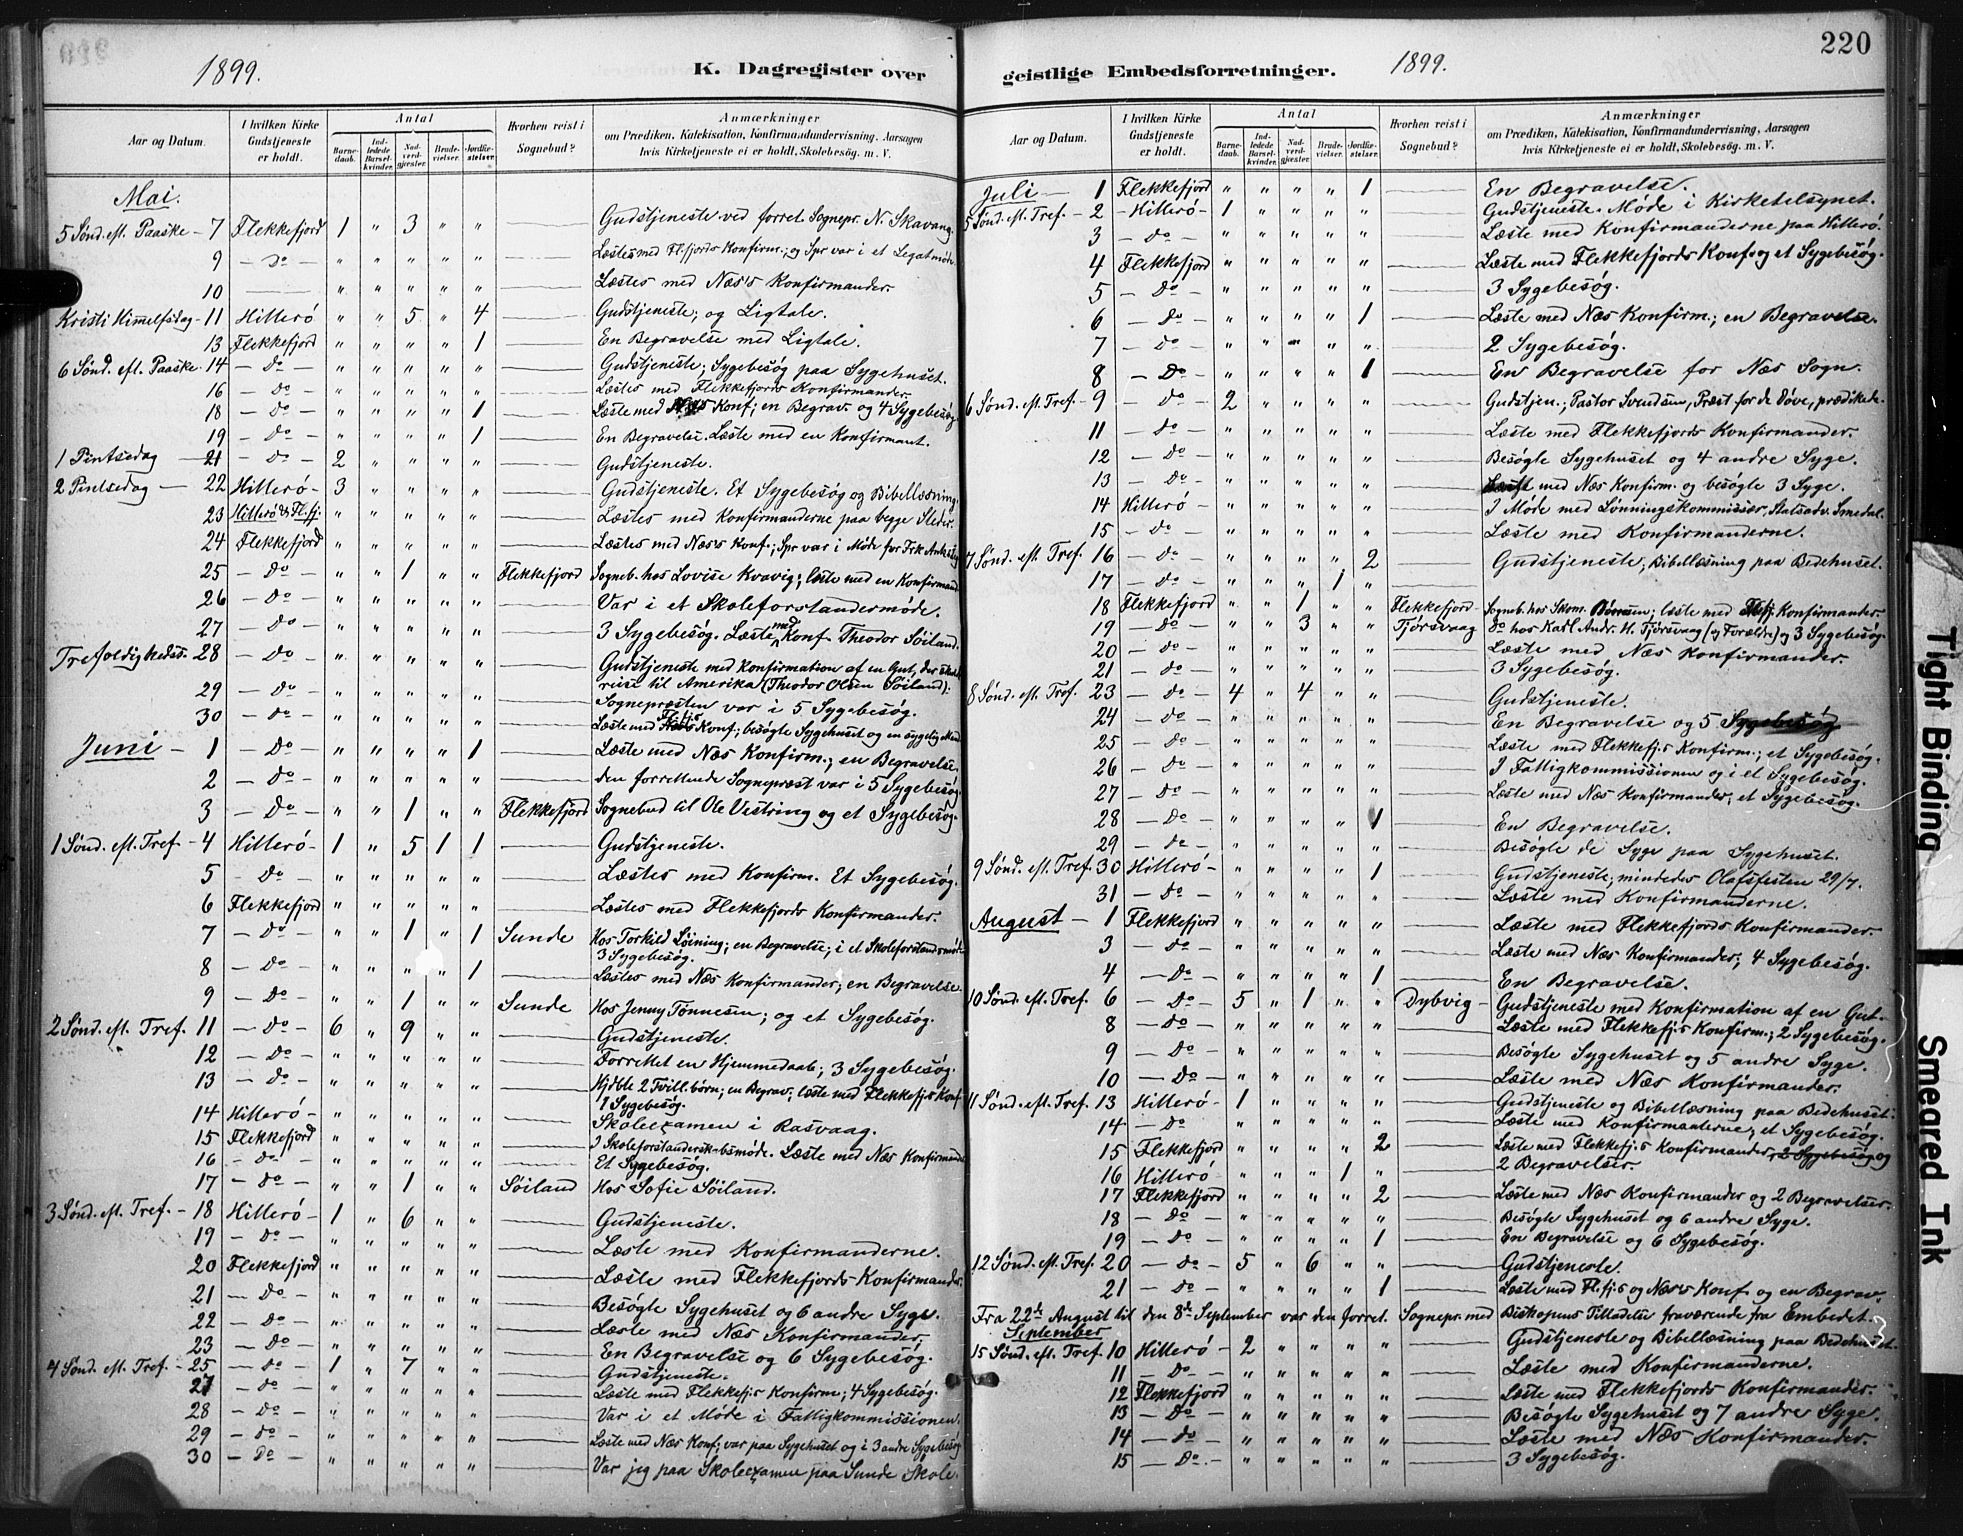 1899. K. Dagregister over
Aar og Datum. I hvilken Kirke Gudstjeneste er holdt. Antal Barnedaab. Indledede Barselkvinder. Nadverdgjester. Brudevielser. Jordfæstelser. Hvorhen reist i Sognebud? Anmærkninger om Prædiken, Katekisation, Konfirmandundervisning, Aarsagen hvis Kirketjeneste ei er holdt, Skolebesög. m. V.
Mai.
5 Sønd. eft. Paaske - 7 Flekkefjord 1 " 3 " " Gudstjeneste ved forret. Sognepr. N. Skavang.
9 - Do - " " " " " Læstes med Fl.fjords Konfirm.; og Spr var i et Legatmøde.
10 " " " " " Læstes med Næs's Konfirmander.
Kristi Himmelfsdag - 11 Hitterø " " 5 " 4 Gudstjeneste; og Ligtale.
13 Flekkefjord " " " " 1 En Begravelse med Ligtale.
6 Sønd. eft. Paaske - 14 - Do - " " " " " Gudstjeneste; Sygebesøg paa Sygehuset.
16 - Do - " " " " " Læstes med Flekkefjords Konfirmander.
18 - Do - " " " " 1 Læste med Næs Konf; en Begrav. og 4 Sygebesøg
19 - Do - " " " " 1 En Begravelse. Læste med en Konfirmant.
1 Pintsedag - 21 - Do - 2 " " " " Gudstjeneste.
2 Pintsedag - 22 Hitterø - 3 " " " " Gudstjeneste. Et Sygebesøg og Bibellæsning.
23 Hitterø & Fl.fj. " " " " " Læstes med Konfirmanderne paa begge Steder.
24 Flekkefjord " " " " " Læstes med Næs's Konf.; Spr var i Møde for Frk
25 - Do - " " 1 " " Flekkefjord Sogneb. hos Lovise Kvavig; læste med en Konfirmand.
26 - Do - " " " " " Var i et Skoleforstandermøde.
27 - Do - " " " " " 3 Sygebesøg. Læste med Konf. Theodor Søiland.
Trefoldighedsd. 28 - Do - " " " " " Gudstjeneste med Konfirmation af en Gut, der skal
29 - Do - " " " " " reise til Amerika (Theodor Olsen Søiland).
30 - Do - " " " " " Sognepræsten var i 5 Sygebesøg.
Læste med Konf.; besøgte Sygehuset og en sygelig
Juni - 1 - Do - " " " " 1 Læste med Næs Konfirm.; en Begravelse.
2 - Do - " " " " " den forrettende Sognepræst var i 5 Sygebesøg
3 - Do - " " 1 " " Flekkefjord Sognebud til Ole Vestring og et Sygebesøg.
1 Sønd. eft. Tref. - 4 Hitterø - 1 " 5 1 1 Gudstjeneste.
5 - Do - " " " " " Læstes med Konfirm. Et Sygebesøg.
6 Flekkefjord " " " " " Læstes med Flekkefjords Konfirmander.
7 - Do - " " 1 " 1 Sunde Hos Torkild Løining; en Begravelse; i et Skoleforstandermøde
3 Sygebesøg.
8 - Do - " " " " 1 Læstes med Næs Konfirmander; en Begravelse.
9 - Do - " " 1 " " Sunde Hos Jenny Tønnesen; og et Sygebesøg.
2 Sønd. eft. Tref. 11 - Do - 6 " 9 " " Gudstjeneste.
12 - Do - " " " " " Forrettet en Hjemmedaab; 3 Sygebesøg.
13 - Do - " " " " " Hjdbte 2 Tvill.børn; en Begrav; læste med Flekkefj.s Konf.
1 Sygebesøg.
14 Hitterø - " " " " " Skoleexamen i Rasvaag.
15 Flekkefjord " " " " " I Skoleforstandersk-bsmøde. Læste med Næs Konfirmand.
16 - Do - " " " " " Et Sygebesøg.
17 - Do - " " 1 " " Søiland Hos Sofie Søiland.
3 Sønd. eft. Tref. - 18 Hitterø - 1 " 6 " " Gudstjeneste.
19 - Do - " " " " " Læste med Konfirmanderne.
20 Flekkefjord " " " " " Læste med Flekkefjords Konfirmander.
21 - Do - " " " " " Besøgte Sygehuset og 6 andre Syge.
22 - Do - " " " " " Læste med Næs Konfirmander.
23 - Do - " " " " " En Begravelse og 6 Sygebesøg.
4 Sønd. eft. Tref. - 25 - Do - 1 " 7 " " Gudstjeneste.
27 - Do - " " " " " Læste med Flekkefj.s Konfirm; 4 Sygebesøg.
28 - Do - " " " " " Var i et Møde i Fattigkommissionen.
29 - Do - " " " " " Læste med Næs Konf; var paa Sygehuset og i 3 andre Sygebesøg
30 - Do - " " " " " Var jeg paa Skoleexamen paa Sunde Skole.
geistlige Embedsforretninger. 1899. 220
Aar og Datum. I hvilken Kirke Gudstjeneste er holdt. Antal Barnedaab. Indledede Barselkvinder. Nadverdgjester. Brudevielser. Jordfæstelser. Hvorhen reist i Sognebud? Anmærkninger om Prædiken, Katekisation, Konfirmandundervisning, Aarsagen hvis Kirketjeneste ei er holdt, Skolebesög. m. V.
Juli - 1 Flekkefjord " " " " 1 En Begravelse.
5 Sønd. eft. Tref. - 2 - Hitterø - 1 " " " " Gudstjeneste. Møde i Kirketilsynet.
3 - Do - " " " " " Læste med Konfirmanderne paa Hitterø.
4 Flekkefjord " " " " " Læste med Flekkefjords Konf. og et Sygebesøg.
5 - Do - " " " " " 3 Sygebesøg.
6 - Do - " " " " 1 Læste med Næs Konfirm.; en Begravelse.
7 - Do - " " " " " 2 Sygebesøg.
8 - Do - " " " " 1 En Begravelse for Næs Sogn.
6 Sønd. eft. Tref. - 9 - Do - 2 " " " " Gudstjen.; Pastor Svendsen, Præst for de Døve, prædikede.
11 - Do - " " " " " Læste med Flekkefjords Konfirmander.
12 - Do - " " " " " Besøgte Sygehuset og 4 andre Syge.
13 - Do - " " " " " Læst med Næs Konfirm. og besøgte 3 Syge.
14 Hitterø - " " " " " I Møde med Lønningskommissær, Statsadv. Smedal.
15 - Do - " " " " " Læste med Konfirmanderne.
7 Sønd. eft. Tref. 16 - Do - " " " " 2 Gudstjeneste; Bibellæsning paa Bedehuset.
17 - Do - " " " 1 "
18 Flekkefjord " " 1 " " Flekkefjord - Sogneb. hos Skom. læste med Flfj. Konfirmander.
19 - Do - " " 3 " " Tjørsvaag do hos Karl Andr. H. Tjørsvaag (og Forældre) og 3 Sygebesøg.
20 - Do - " " " " " Læste med Næs Konfirmander.
21 - Do - " " " " " 3 Sygebesøg.
8 Sønd. eft. Tref. 23 - Do - 4 " 4 " " Gudstjeneste.
24 - Do - " " " " " En Begravelse og 5 Sygebesøg
25 - Do - " " " " " Læste med Flekkefj.s Konfirm.; et Sygebesøg.
26 - Do - " " " " " I Fattigkommissionen og i et Sygebesøg.
27 - Do - " " " " " Læste med Næs Konfirmander; et Sygebesøg.
28 - Do - " " " " 1 En Begravelse.
29 - Do - " " " " " Besøgte de Syge paa Sygehuset.
9 Sønd. eft. Tref. 30 Hitterø - " " " " 1 Gudstjeneste; mindedes Olafsfesten 29/7.
31 - Do - " " " " " Læste med Konfirmanderne.
August - 1 Flekkefjord " " " " " Læste med Flekkefjords Konfirmander.
3 - Do - " " " " " Læste med Næs Konfirmander; 4 Sygebesøg.
4 - Do - " " " " 1 En Begravelse.
10 Sønd. eft. Tref. 6 - Do - 5 " 1 " " Dybvig - Gudstjeneste med Konfirmation af en Gut.
8 - Do - " " " " " Læste med Flekkefj.s Konfirm.; 2 Sygebesøg.
9 - Do - " " " " " Besøgte Sygehuset og 5 andre Syge.
10 - Do - " " " " " Læste med Næs Konfirmander.
11 Sønd. eft. Tref. 13 Hitterø - 1 " " " " Gudstjeneste og Bibellæsning paa Bedehuset.
14 - Do - " " " " " Læste med Konfirmanterne; et Sygebesøg.
15 Flekkefjord " " " " 2 Læste med Flekkefj.s Konfirmander, 2 Sygebesøg og
16 Hitterø - " " " 1 " 2 Begravelser.
17 Flekkefjord " " " " 2 Læste med Næs Konfirmander og 2 Begravelser.
18 - Do - " " " " " Besøgte Sygehuset og 6 andre Syge.
19 - Do - " " " " 1 En Begravelse og 6 Sygebesøg.
12 Sønd. eft. Tref. 20 - Do - 5 " 6 " " Gudstjeneste.
21 - Do - " " " " 1 Læste med Fl.fj.s og Næs's Konf. og en Begrav.
Fra 22de August til den 8de September var den forret. Sognepr. med Biskopens Tilladelse fraværende fra Embedet.
September
15 Sønd. eft. Tref. 10 Hitterø - 2 " " " " Gudstjeneste og Bibellæsning paa Bedehuset.
11 - Do - " " " " " Læste med Konfirmanderne.
12 Flekkefjord " " " " " Læste med Flekkefjords Konfirmander.
13 - Do - " " " " " Besøgte Sygehuset og 7 andre Syge.
14 - Do - " " " " " Læste med Næs Konfirmander.
15 - Do - " " " " " 3 Sygebesøg.
Tight Binding
Smeared Ink